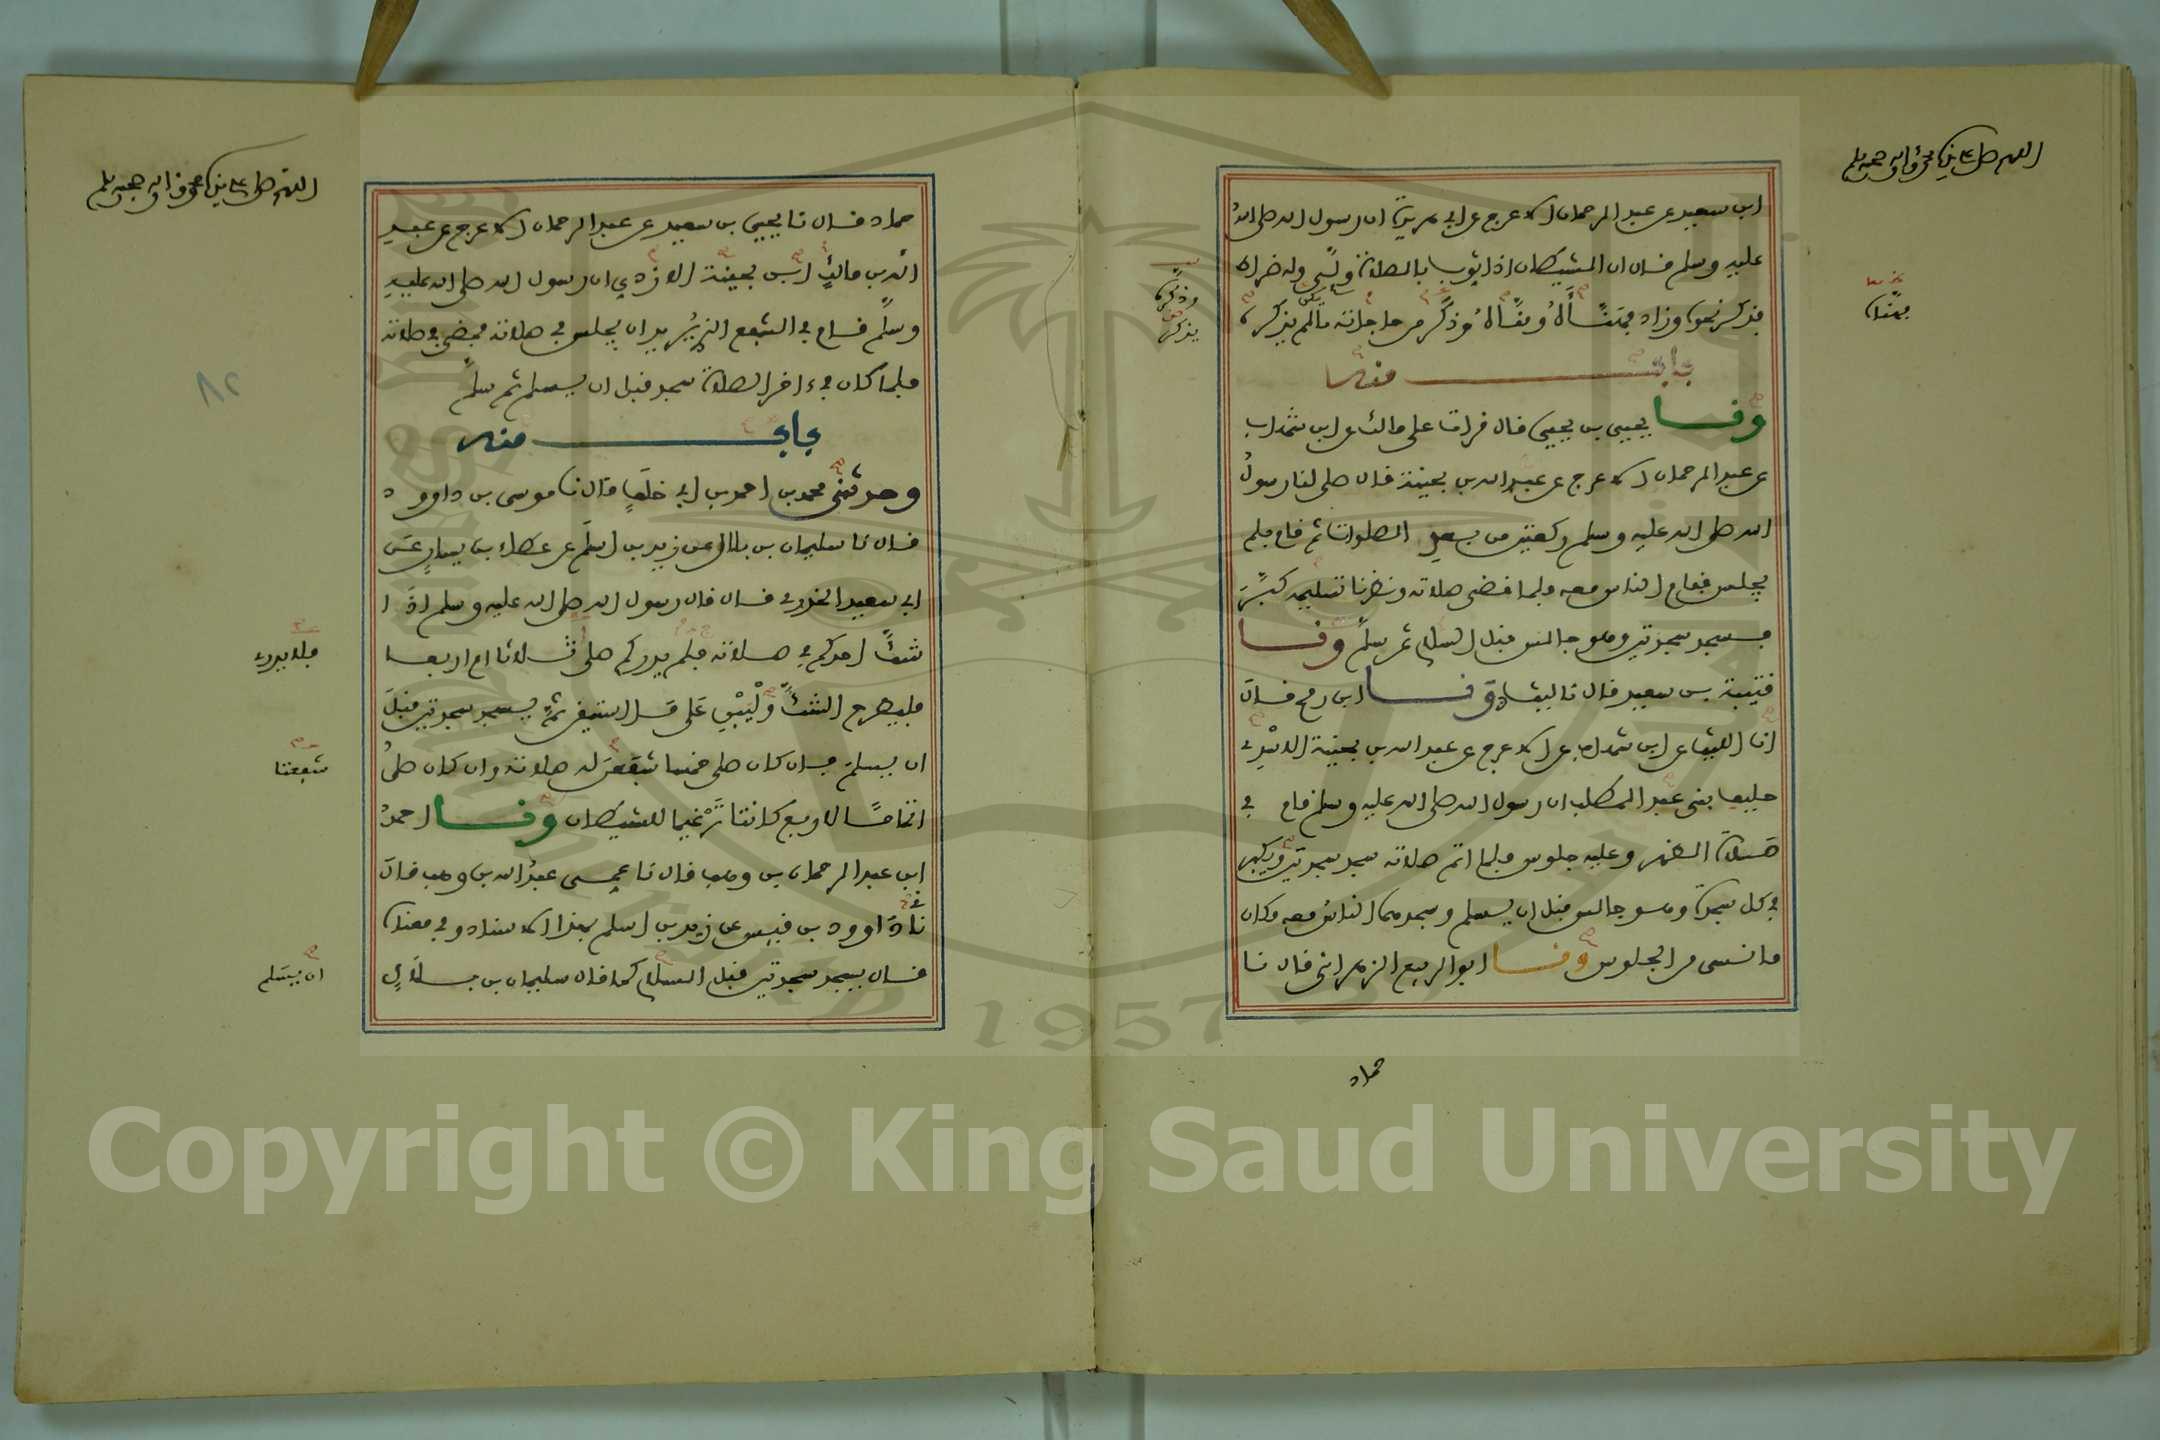 اللهم صل على سيدنا محمد وآله وصحبه وسلم
ابن سعيد عن عبد الرحمان الاعرج عن ابي هريرة ان رسول الله صلى الله
عليه وسلم قال ان الشيطان اذا ثوب بالصلاة ولى وله ضراط
فذكر نحوه وزاد فهناه ومناه وذكره من حاجاته ما لم يكن يذكر
باب منه
ونا يحيى بن يحيى قال قرات على مالك عن ابن شهاب
عن عبد الرحمان الاعرج عن عبد الله بن بحينة قال صلى لنا رسول
الله صلى الله عليه وسلم ركعتين من بعض الصلوات ثم قام فلم
يجلس فقام الناس معه فلما قضى صلاته ونظرنا تسليمه كبر
فسجد سجدتين وهو جالس قبل السلام ثم سلم ونا
قتيبة بن سعيد قال نا ليث ونا ابن رمح قال
انا الليث عن ابن شهاب عن الاعرج عن عبد الله بن بحينة الاسدي
حليف بني عبد المطلب ان رسول الله صلى الله عليه وسلم قام في
صلاة الظهر وعليه جلوس فلما اتم صلاته سجد سجدتين ويكبر
في كل سجدة وهو جالس قبل ان يسلم وسجدهما الناس معه مكان
ما نسي من الجلوس ونا ابو الربيع الزهراني قال نا
حماد
وذكره
يذكر
اللهم صل على سيدنا محمد وآله وصحبه وسلم
حماد قال نا يحيى بن سعيد عن عبد الرحمان الاعرج عن عبد
الله بن مالك ابن بحينة الازدي ان رسول الله صلى الله عليه
وسلم قام في الشفع الذي يريد ان يجلس في صلاته فمضى في صلاته
فلما كان في ءاخر الصلاة سجد قبل ان يسلم ثم سلم
باب منه
وحدثني محمد بن احمد بن ابي خلف قال نا موسى بن داوود
قال نا سليمان بن بلال عن زيد بن اسلم عن عطاء بن يسار عن
ابي سعيد الخدري قال قال رسول الله صلى الله عليه وسلم اذا
شك احدكم في صلاته فلم يدر كم صلى ثلاثا ام اربعا
فليطرح الشك وليبن على ما استيقن ثم يسجد سجدتين قبل
ان يسلم فان كان صلى خمسا شفعن له صلاته وان كان صلى
اتماما لاربع كانتا ترغيما للشيطان ونا احمد
ابن عبد الرحمان بن وهب قال نا عمي عبد الله بن وهب قال
نا داوود بن قيس عن زيد بن اسلم بهذا الاسناد وفي معناه
قال يسجد سجدتين قبل السلام كما قال سليمان بن بلال
فلا يدري
شفعتا
ان يسلم
٨٢
Copyright © King Saud University
1957